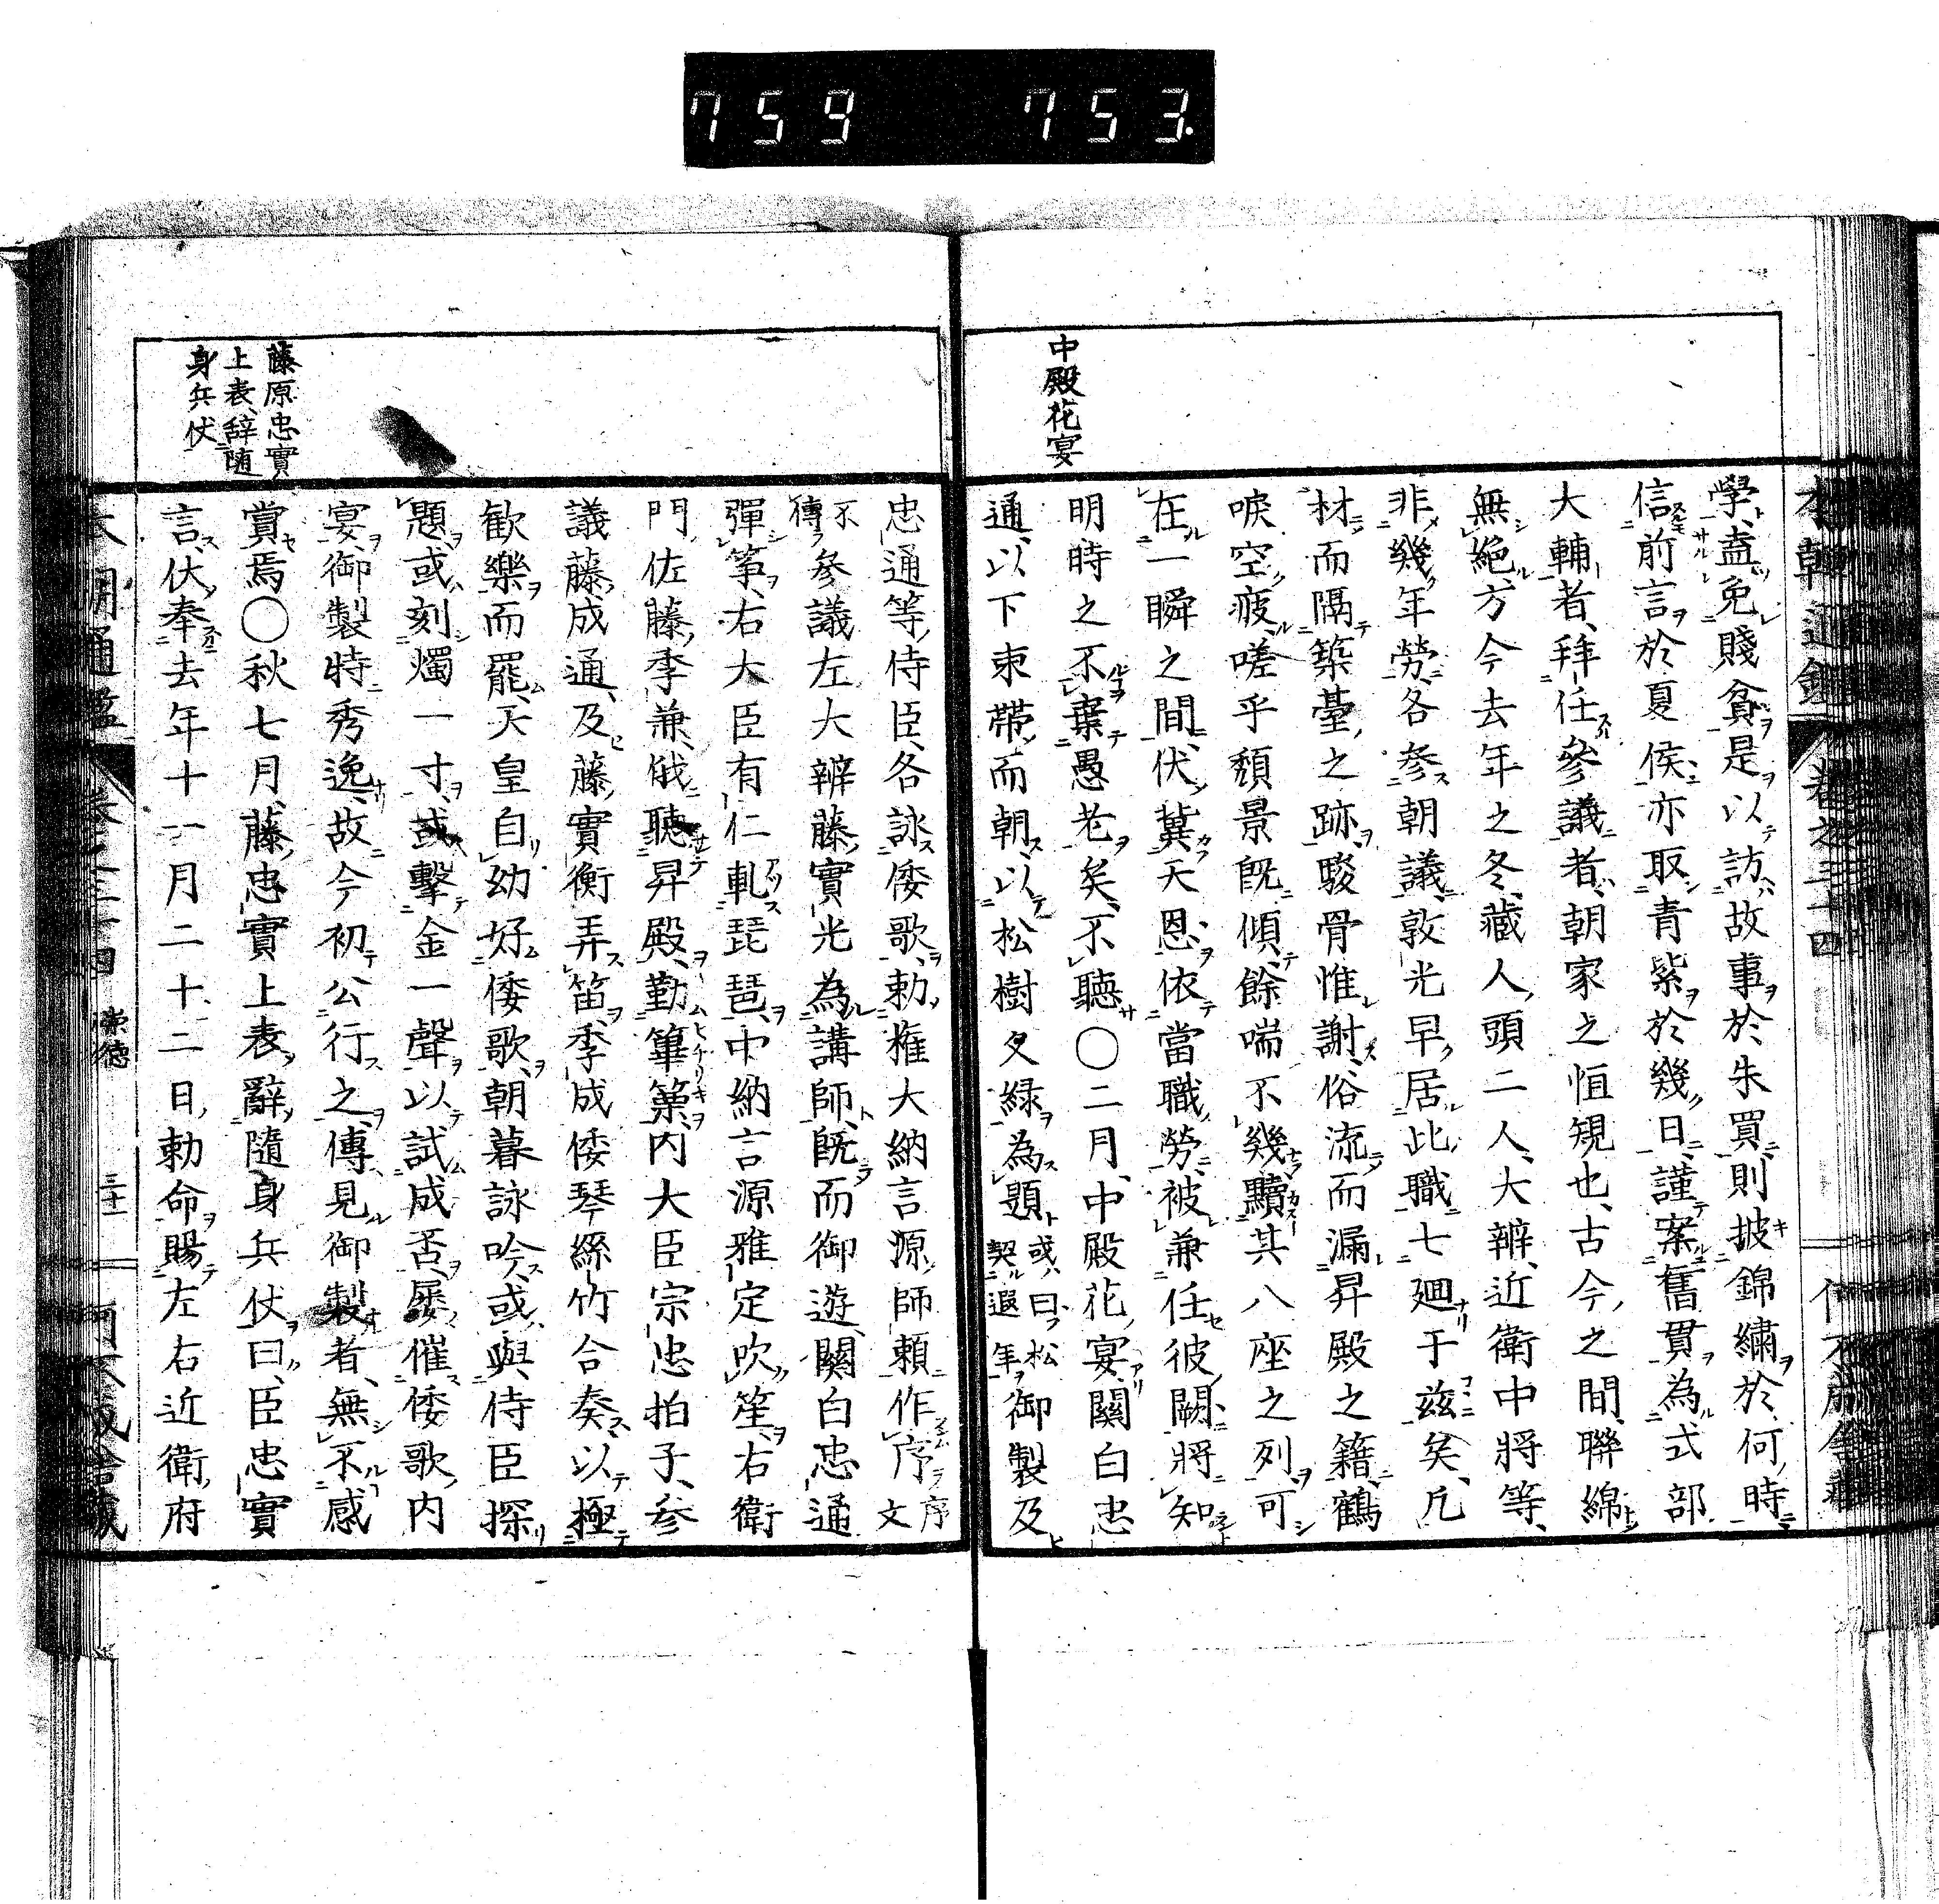 759 753.
中殿花宴
學、盍免賤貧、是以訪故事於朱買、則披錦繍於何時
信前言於夏侯、亦取青紫於幾日、謹案舊貫、為式部
大輔者、拜任參議者、朝家之恒規也、古今之間、聯綿
無絕、方今去年之冬、藏人頭二人、大辨、近衛中將等、
非幾年勞、各參朝議、敦光早居此職、七廻于兹矣、凡
材而隔築臺之跡、駿骨惟謝、俗流而漏昇殿之籍、鶴
唳空疲、嗟乎頹景旣傾、餘喘不幾、黷其八座之列、可
在一瞬之間、伏冀天恩、依當職勞、被兼任彼闕、將知
明時之不棄愚老矣、不聽〇二月、中殿花宴、關白忠
通、以下束帶而朝、以松樹久緑為題 或曰、松契遐年 御製及
藤原忠實
上表、辞隨
身兵仗
忠通等、侍臣、各詠倭歌、勅、權大納言源師賴作序 序文
不傳 參議左大辨藤實光為講師、旣而御遊、關白忠通
彈箏、右大臣有仁軋琵琶、中納言源雅定吹笙、右衛
門佐藤季兼、俄聽昇殿、勤篳篥、内大臣宗忠拍子、參
議藤成通、及藤實衡弄笛、季成倭琴、絲竹合奏、以極
歡樂而罷、天皇自幼好倭歌、朝暮詠吟、或與侍臣探
題、或刻燭一寸、或擊金一聲、以試成否、屢催倭歌、内
宴、御製特秀逸、故今初公行之、傳見御製者、無不感
賞焉〇秋七月、藤忠實上表、辭隨身兵仗曰、臣忠實
言、伏奉去年十一月二十二日勅命、賜左右近衛府
本朝通鑑 卷之三十四 崇德 三十一